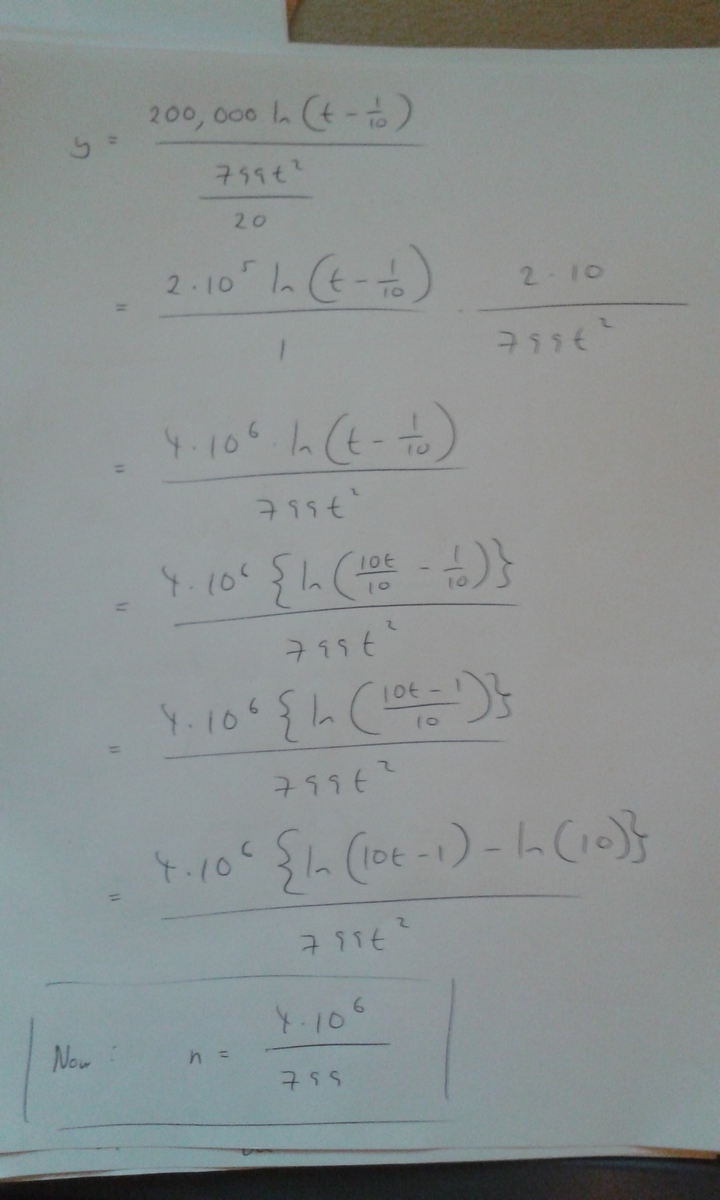 y = \frac{200,000 \ln(t - \frac{1}{10})}{\frac{799t^2}{20}}
= \frac{2 \cdot 10^5 \ln(t - \frac{1}{10})}{1} \cdot \frac{2 \cdot 10}{799t^2}
= \frac{4 \cdot 10^6 \cdot \ln(t - \frac{1}{10})}{799t^2}
= \frac{4 \cdot 10^6 \{\ln(\frac{10t}{10} - \frac{1}{10})\}}{799t^2}
= \frac{4 \cdot 10^6 \{\ln(\frac{10t - 1}{10})\}}{799t^2}
= \frac{4 \cdot 10^6 \{\ln(10t - 1) - \ln(10)\}}{799t^2}
Now: n = \frac{4 \cdot 10^6}{799}